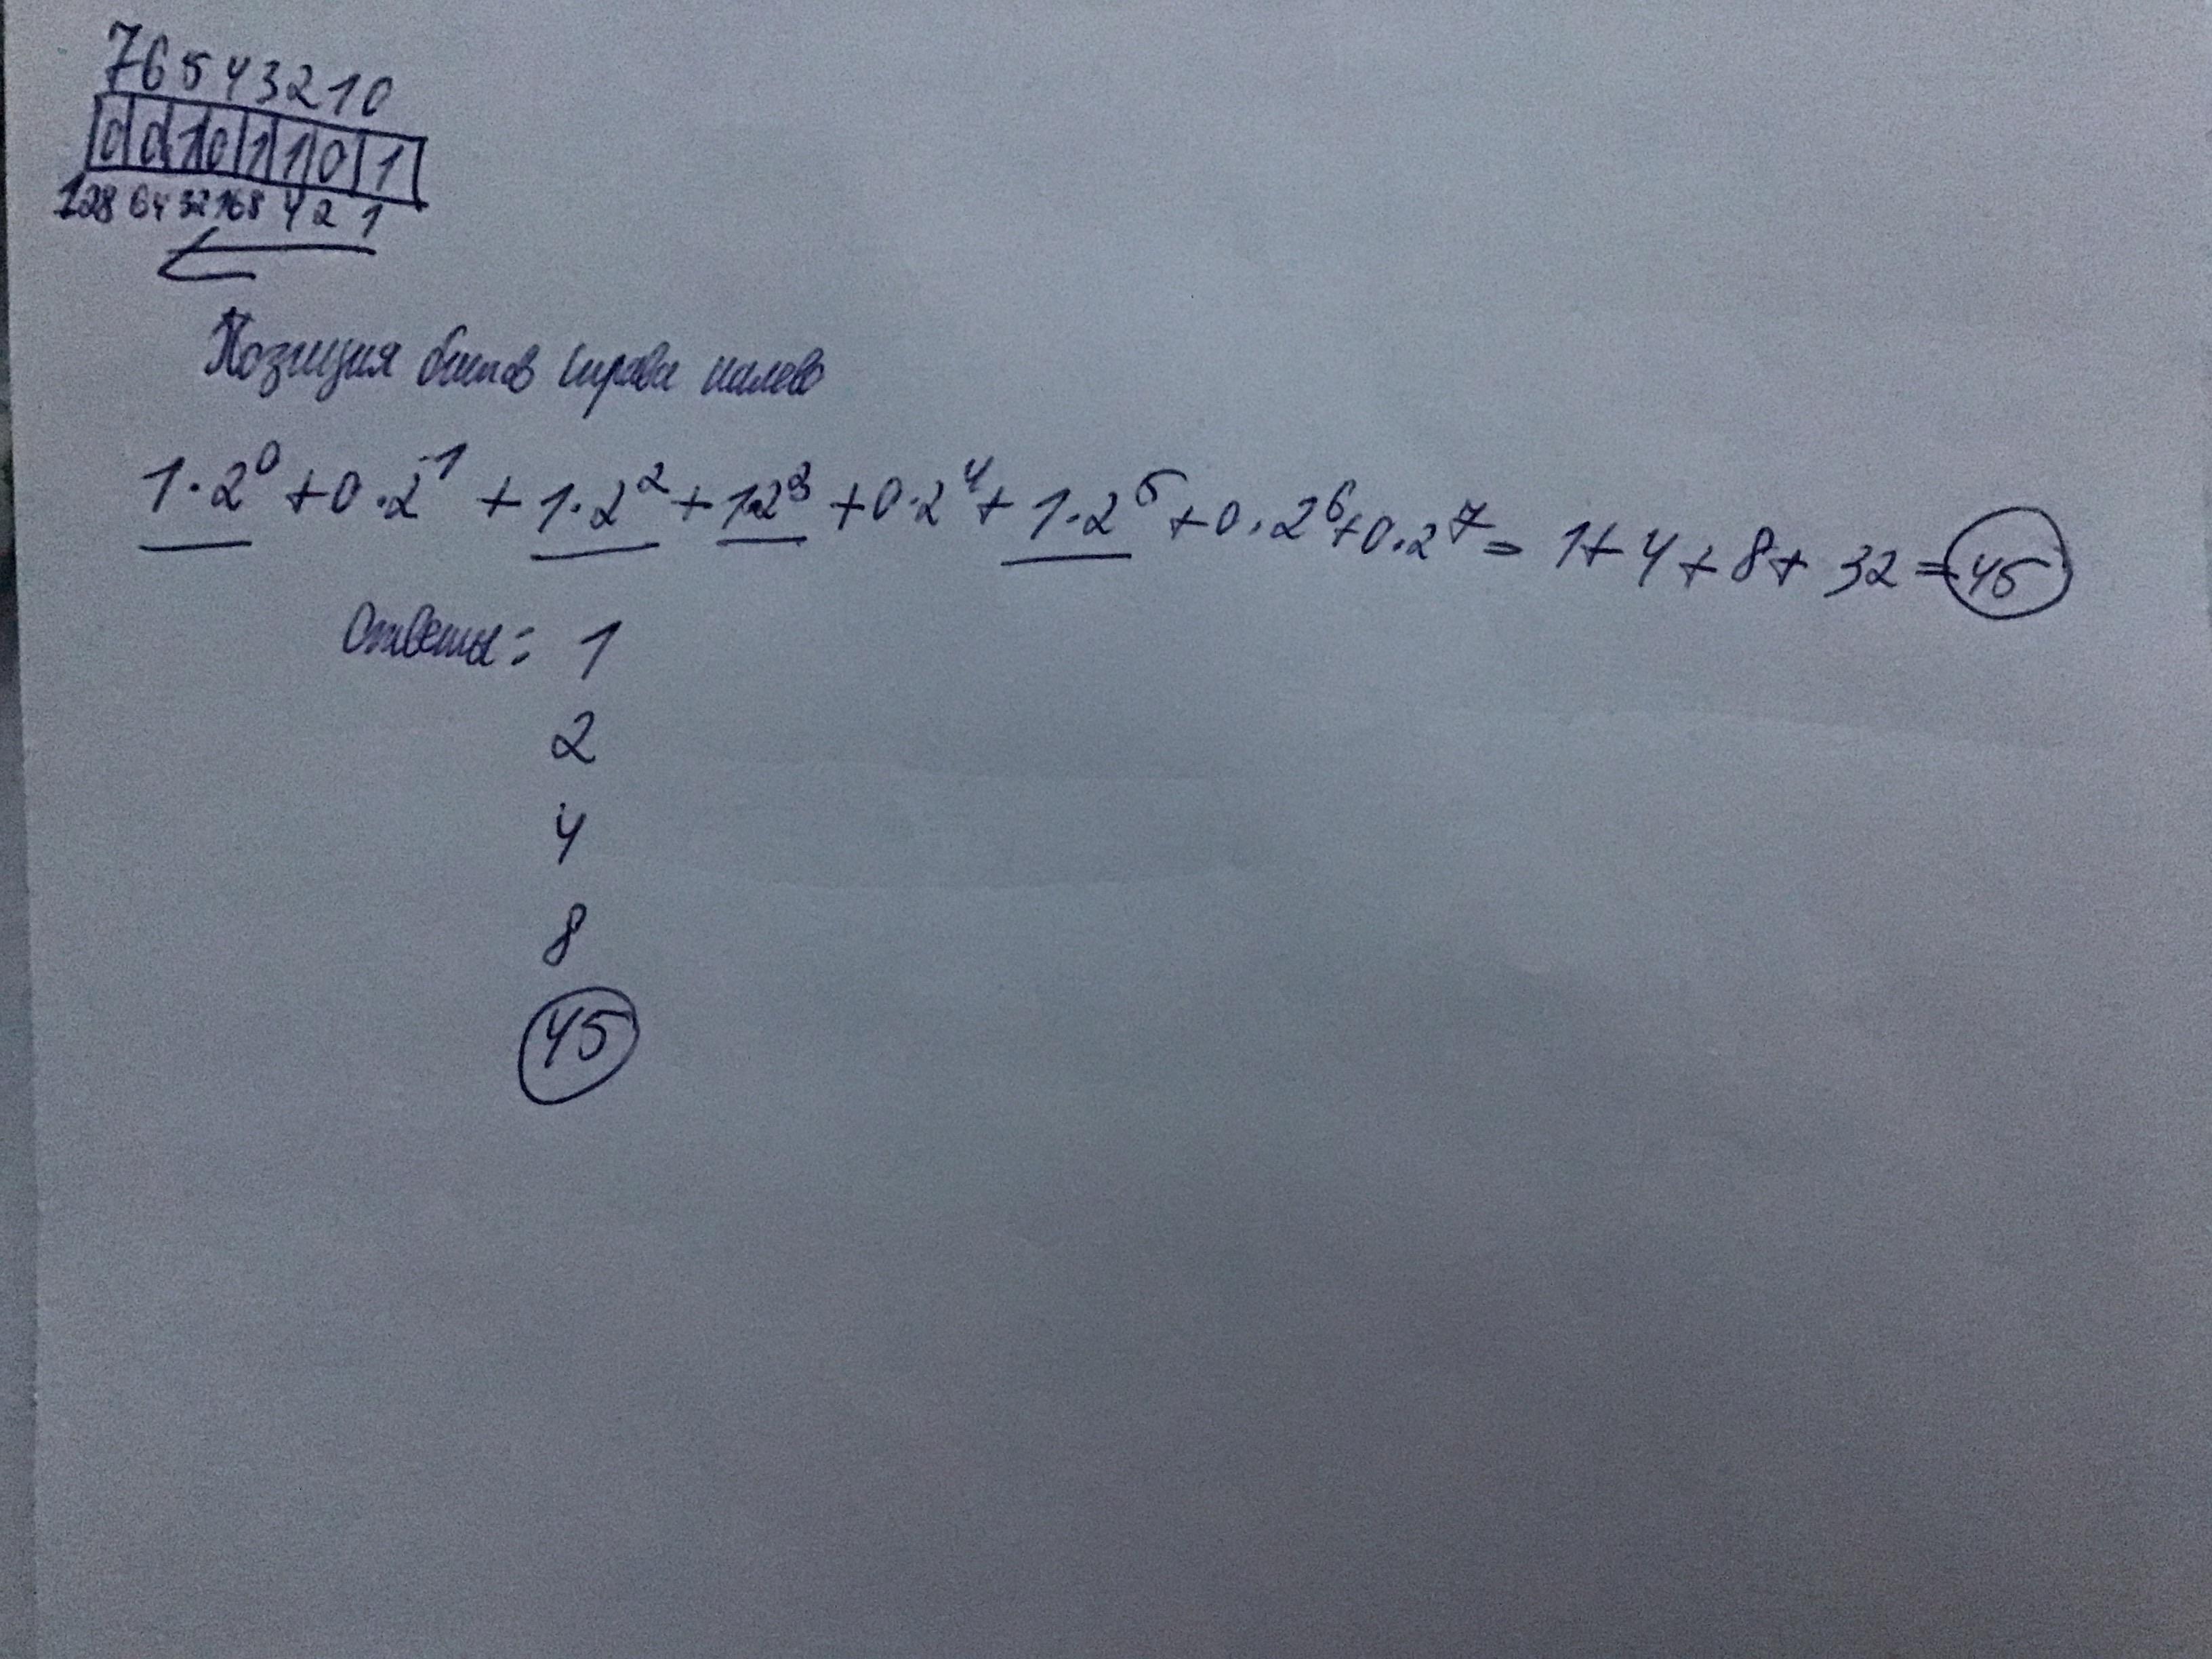 76543210
0 0 1 0 1 1 0 1
128 64 32 16 8 4 2 1
Позиция битов справа налево
1·2⁰ + 0·2¹ + 1·2² + 1·2³ + 0·2⁴ + 1·2⁵ + 0·2⁶ + 0·2⁷ = 1 + 4 + 8 + 32 = 45
Ответы: 1
2
4
8
45